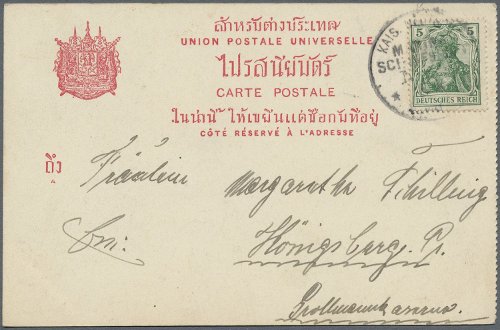 สำหรับต่างประเทศ
UNION POSTALE UNIVERSELLE
ไปรสนียบัตร์
CARTE POSTALE
ในน่านี้ ให้เขียนแต่ชื่อกับที่อยู่
CÔTÉ RÉSERVÉ À L'ADRESSE
5 5
DEUTSCHES REICH
KAIS.
ถึง
Fräulein Margarethe Schilling
Königsberg. Pr.
Grollmannkaserne.